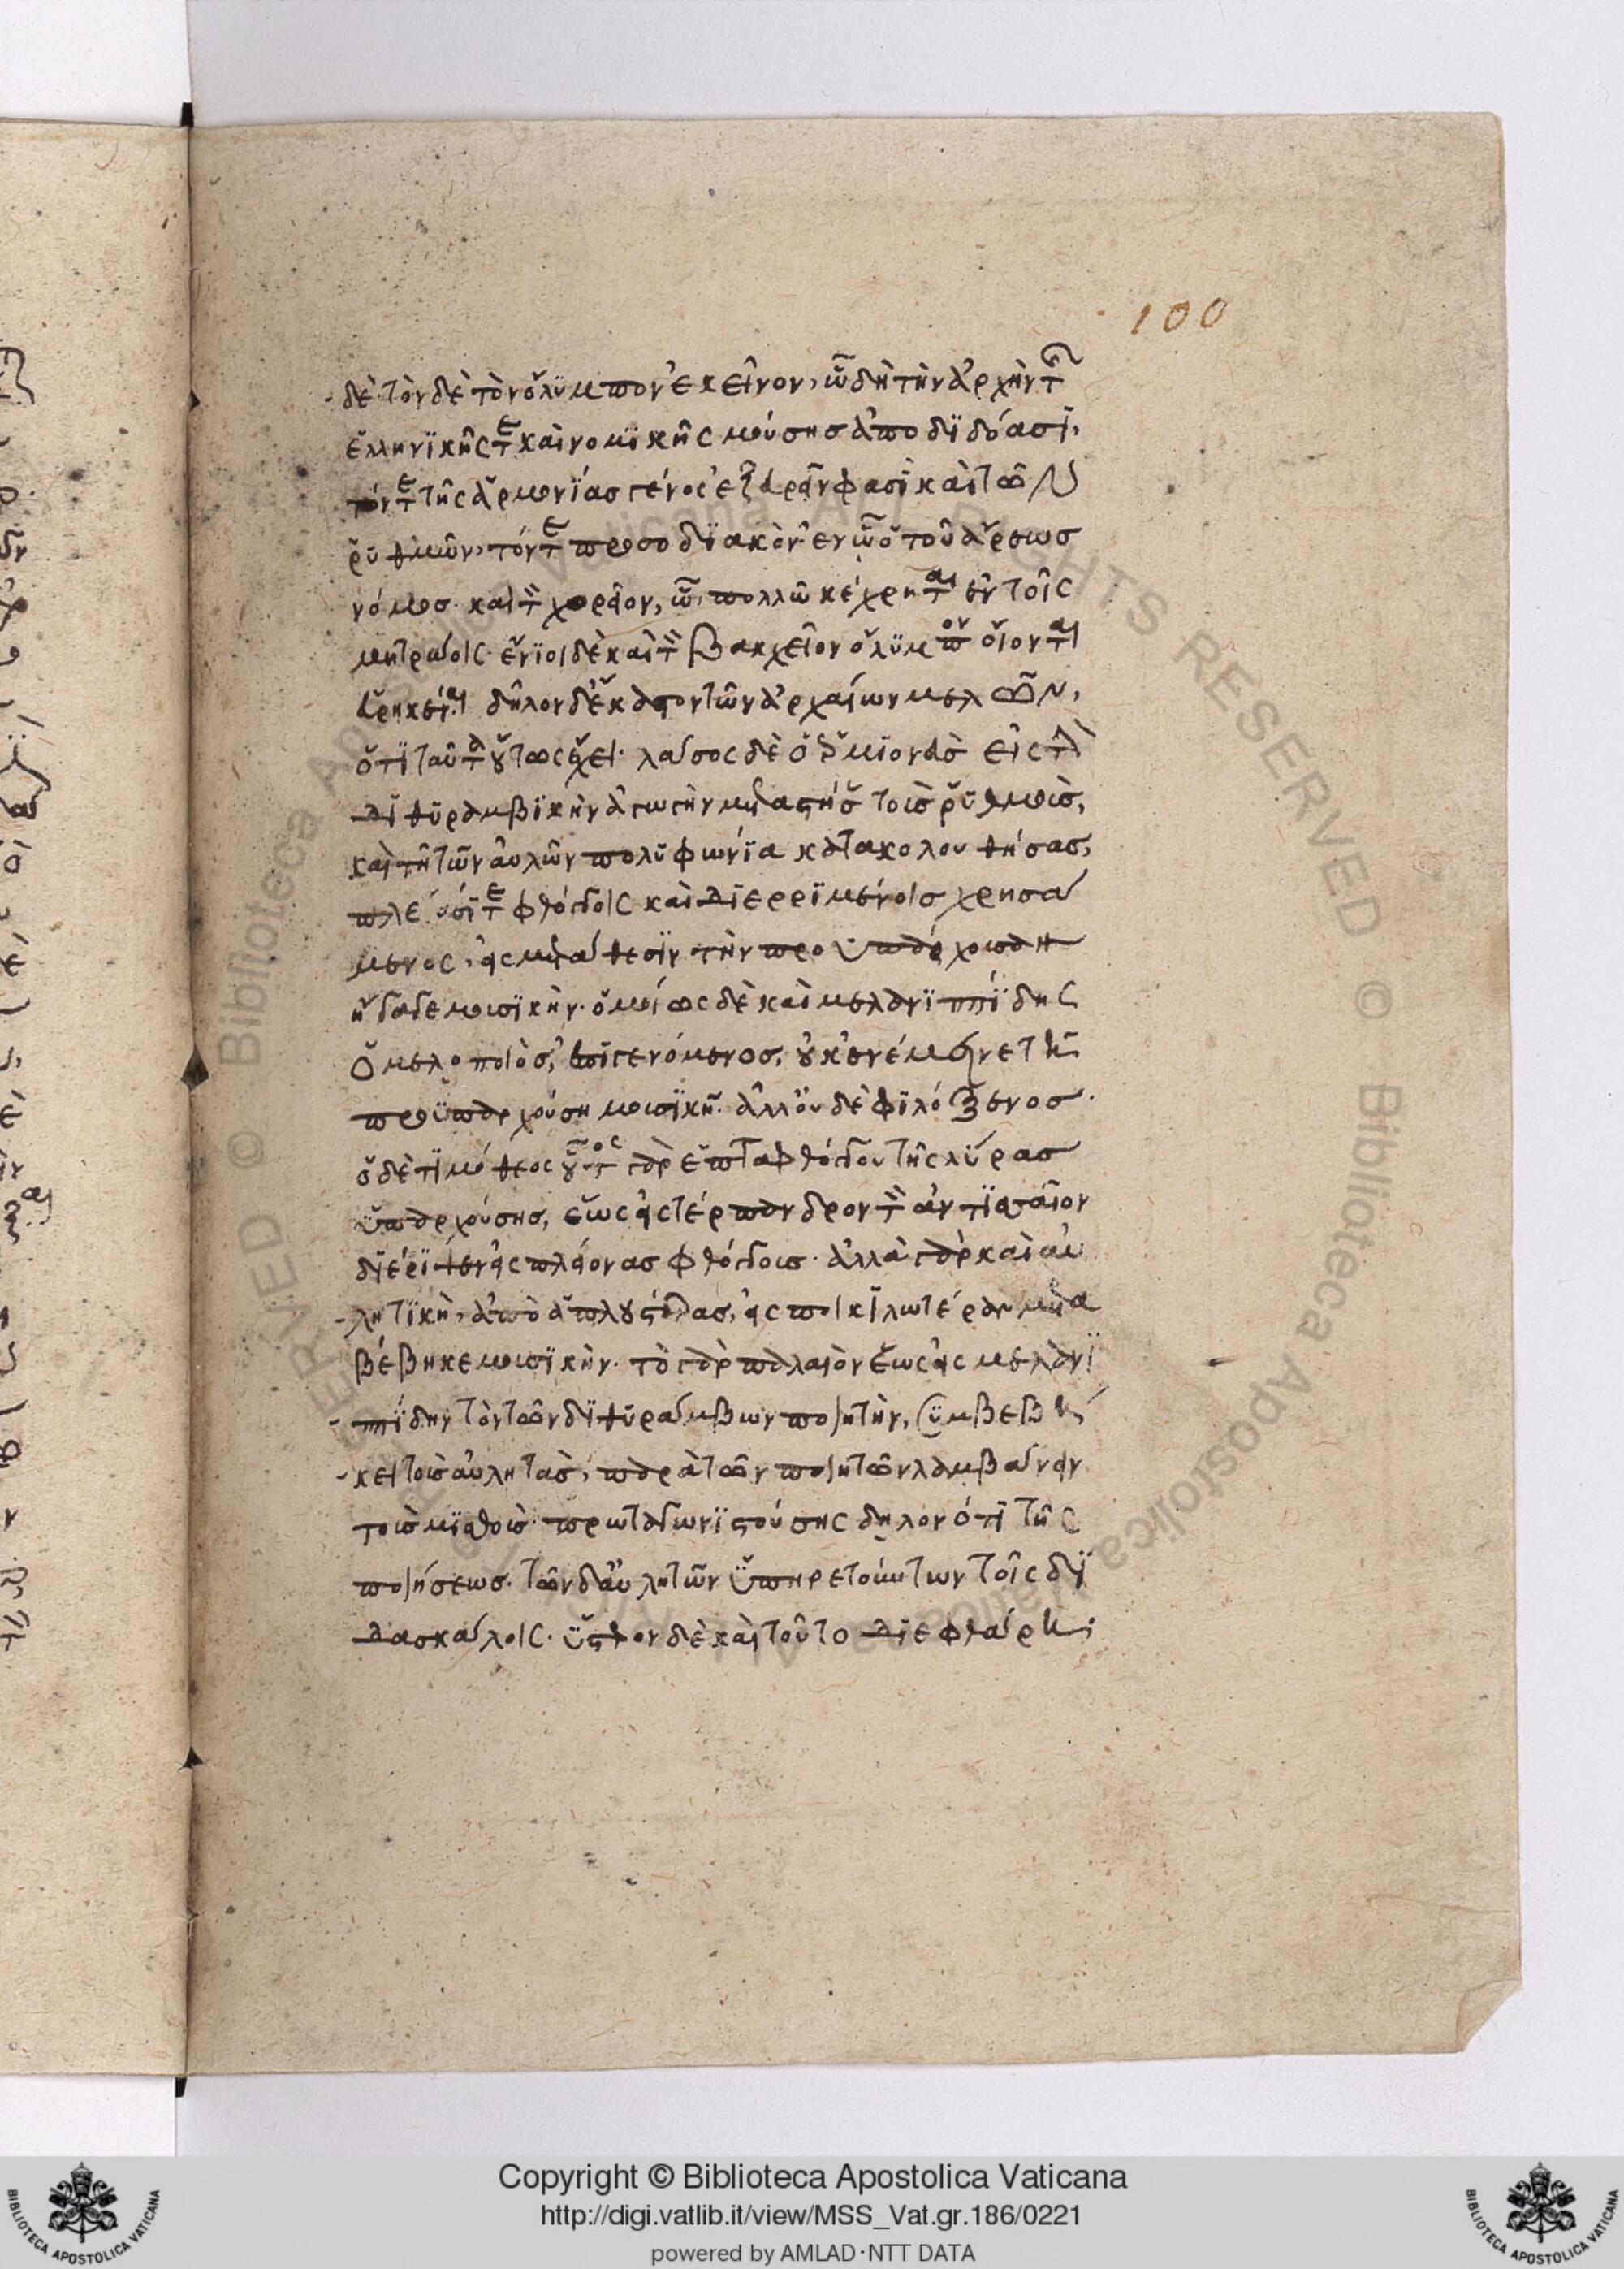 100
δὲ· τὸν δὲ τὸν ὄλυμπον ἐκεῖνον, ὧ δὴ τὴν ἀρχὴν τῆς
ἑλληνικῆς τε καὶ νομικῆς μούσης ἀποδιδόασι,
τόν τε τῆς ἁρμονίας γένος ἐξευρεῖν φασὶ καὶ τῶν
ῥυθμῶν, τόν τε προσοδιακὸν ἐν ὧ ὁ τοῦ ἄρεως
νόμος· καὶ τὸν χορεῖον, ὧ πολλῶ κέχρηται ἐν τοῖς
μητρώοις· ἔνιοι δὲ καὶ τὸν βακχεῖον ὄλυμπον οἴονται
εὑρηκέναι· δῆλον δ' ἕκαστον τῶν ἀρχαίων μελῶν,
ὅτι ταῦτα οὕτως ἔχει· λάσος δὲ ὁ ἑρμιονεὺς εἰς τὴν
διθυραμβικὴν ἀγωγὴν μεταστήσας τοὺς ῥυθμούς,
καὶ τῆ τῶν αὐλῶν πολυφωνία κατακολουθήσας,
πλείοσί τε φθόγγοις καὶ διερριμένοις χρησά
μενος, εἰς μετάθεσιν τὴν προυπάρχουσαν
ἤγαγε μουσικήν· ὁμοίως δὲ καὶ μελανιππίδης
ὁ μελοποιὸς, ἐπιγενόμενος, οὐκ ἐνέμεινε τῆ
προυπαρχούση μουσικῆ· ἀλλ' οὐδὲ φιλόξενος·
οὐδὲ τιμόθεος· οὗτος γὰρ ἑπταφθόγγου τῆς λύρας
ὑπαρχούσης, ἕως εἰς τέρπανδρον τὸν ἀντισσαῖον
διέριψεν εἰς πλείονας φθόγγους· ἀλλὰ γὰρ καὶ αὐ
λητικὴ, ἀπὸ ἁπλουστέρας, εἰς ποικιλωτέραν μετα
βέβηκε μουσικήν· τὸ γὰρ παλαιὸν ἕως εἰς μελανι
ππίδην τὸν τῶν διθυράμβων ποιητὴν, συμβεβή
κει τοὺς αὐλητὰς, παρὰ τῶν ποιητῶν λαμβάνειν
τοὺς μισθούς· πρωταγωνιστούσης δηλονότι τῆς
ποιήσεως· τῶν δ' αὐλητῶν ὑπηρετούντων τοῖς δι
δασκάλοις· ὕστερον δὲ καὶ τοῦτο διεφθάρη·
Copyright © Biblioteca Apostolica Vaticana
http://digi.vatlib.it/view/MSS_Vat.gr.186/0221
powered by AMLAD·NTT DATA